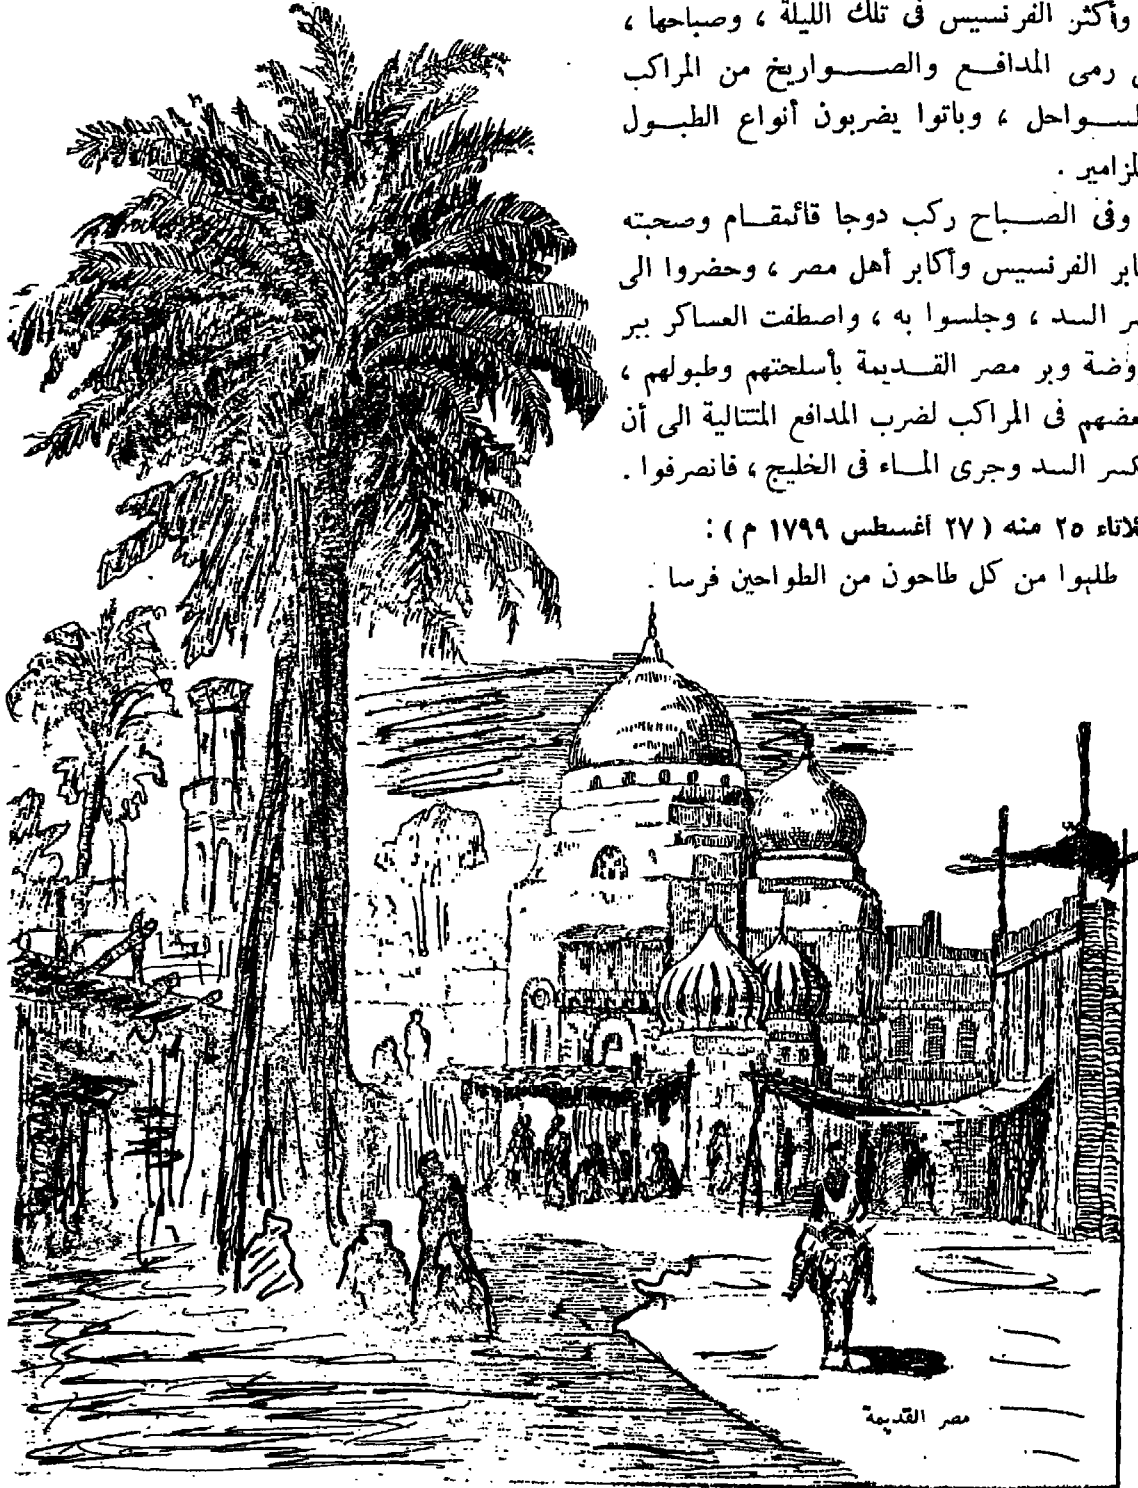 وأكثر الفرنسيس فى تلك الليلة ، وصباحها ،
رمى المدافع والصواريخ من المراكب
ـسواحل ، وباتوا يضربون أنواع الطبول
ـلزامير .
وفى الصباح ركب دوجا قائمقام وصحبته
ـابر الفرنسيس وأكابر أهل مصر ، وحضروا الى
ـر السد ، وجلسوا به ، واصطفت العساكر ببر
ـروضة وبر مصر القديمة بأسلحتهم وطبولهم ،
ـعضهم فى المراكب لضرب المدافع المتتالية الى أن
ـكسر السد وجرى الماء فى الخليج ، فانصرفوا .
ـلاثاء ٢٥ منه ( ٢٧ أغسطس ١٧٩٩ م ) :
طلبوا من كل طاحون من الطواحين فرسا .
مصر القديمة